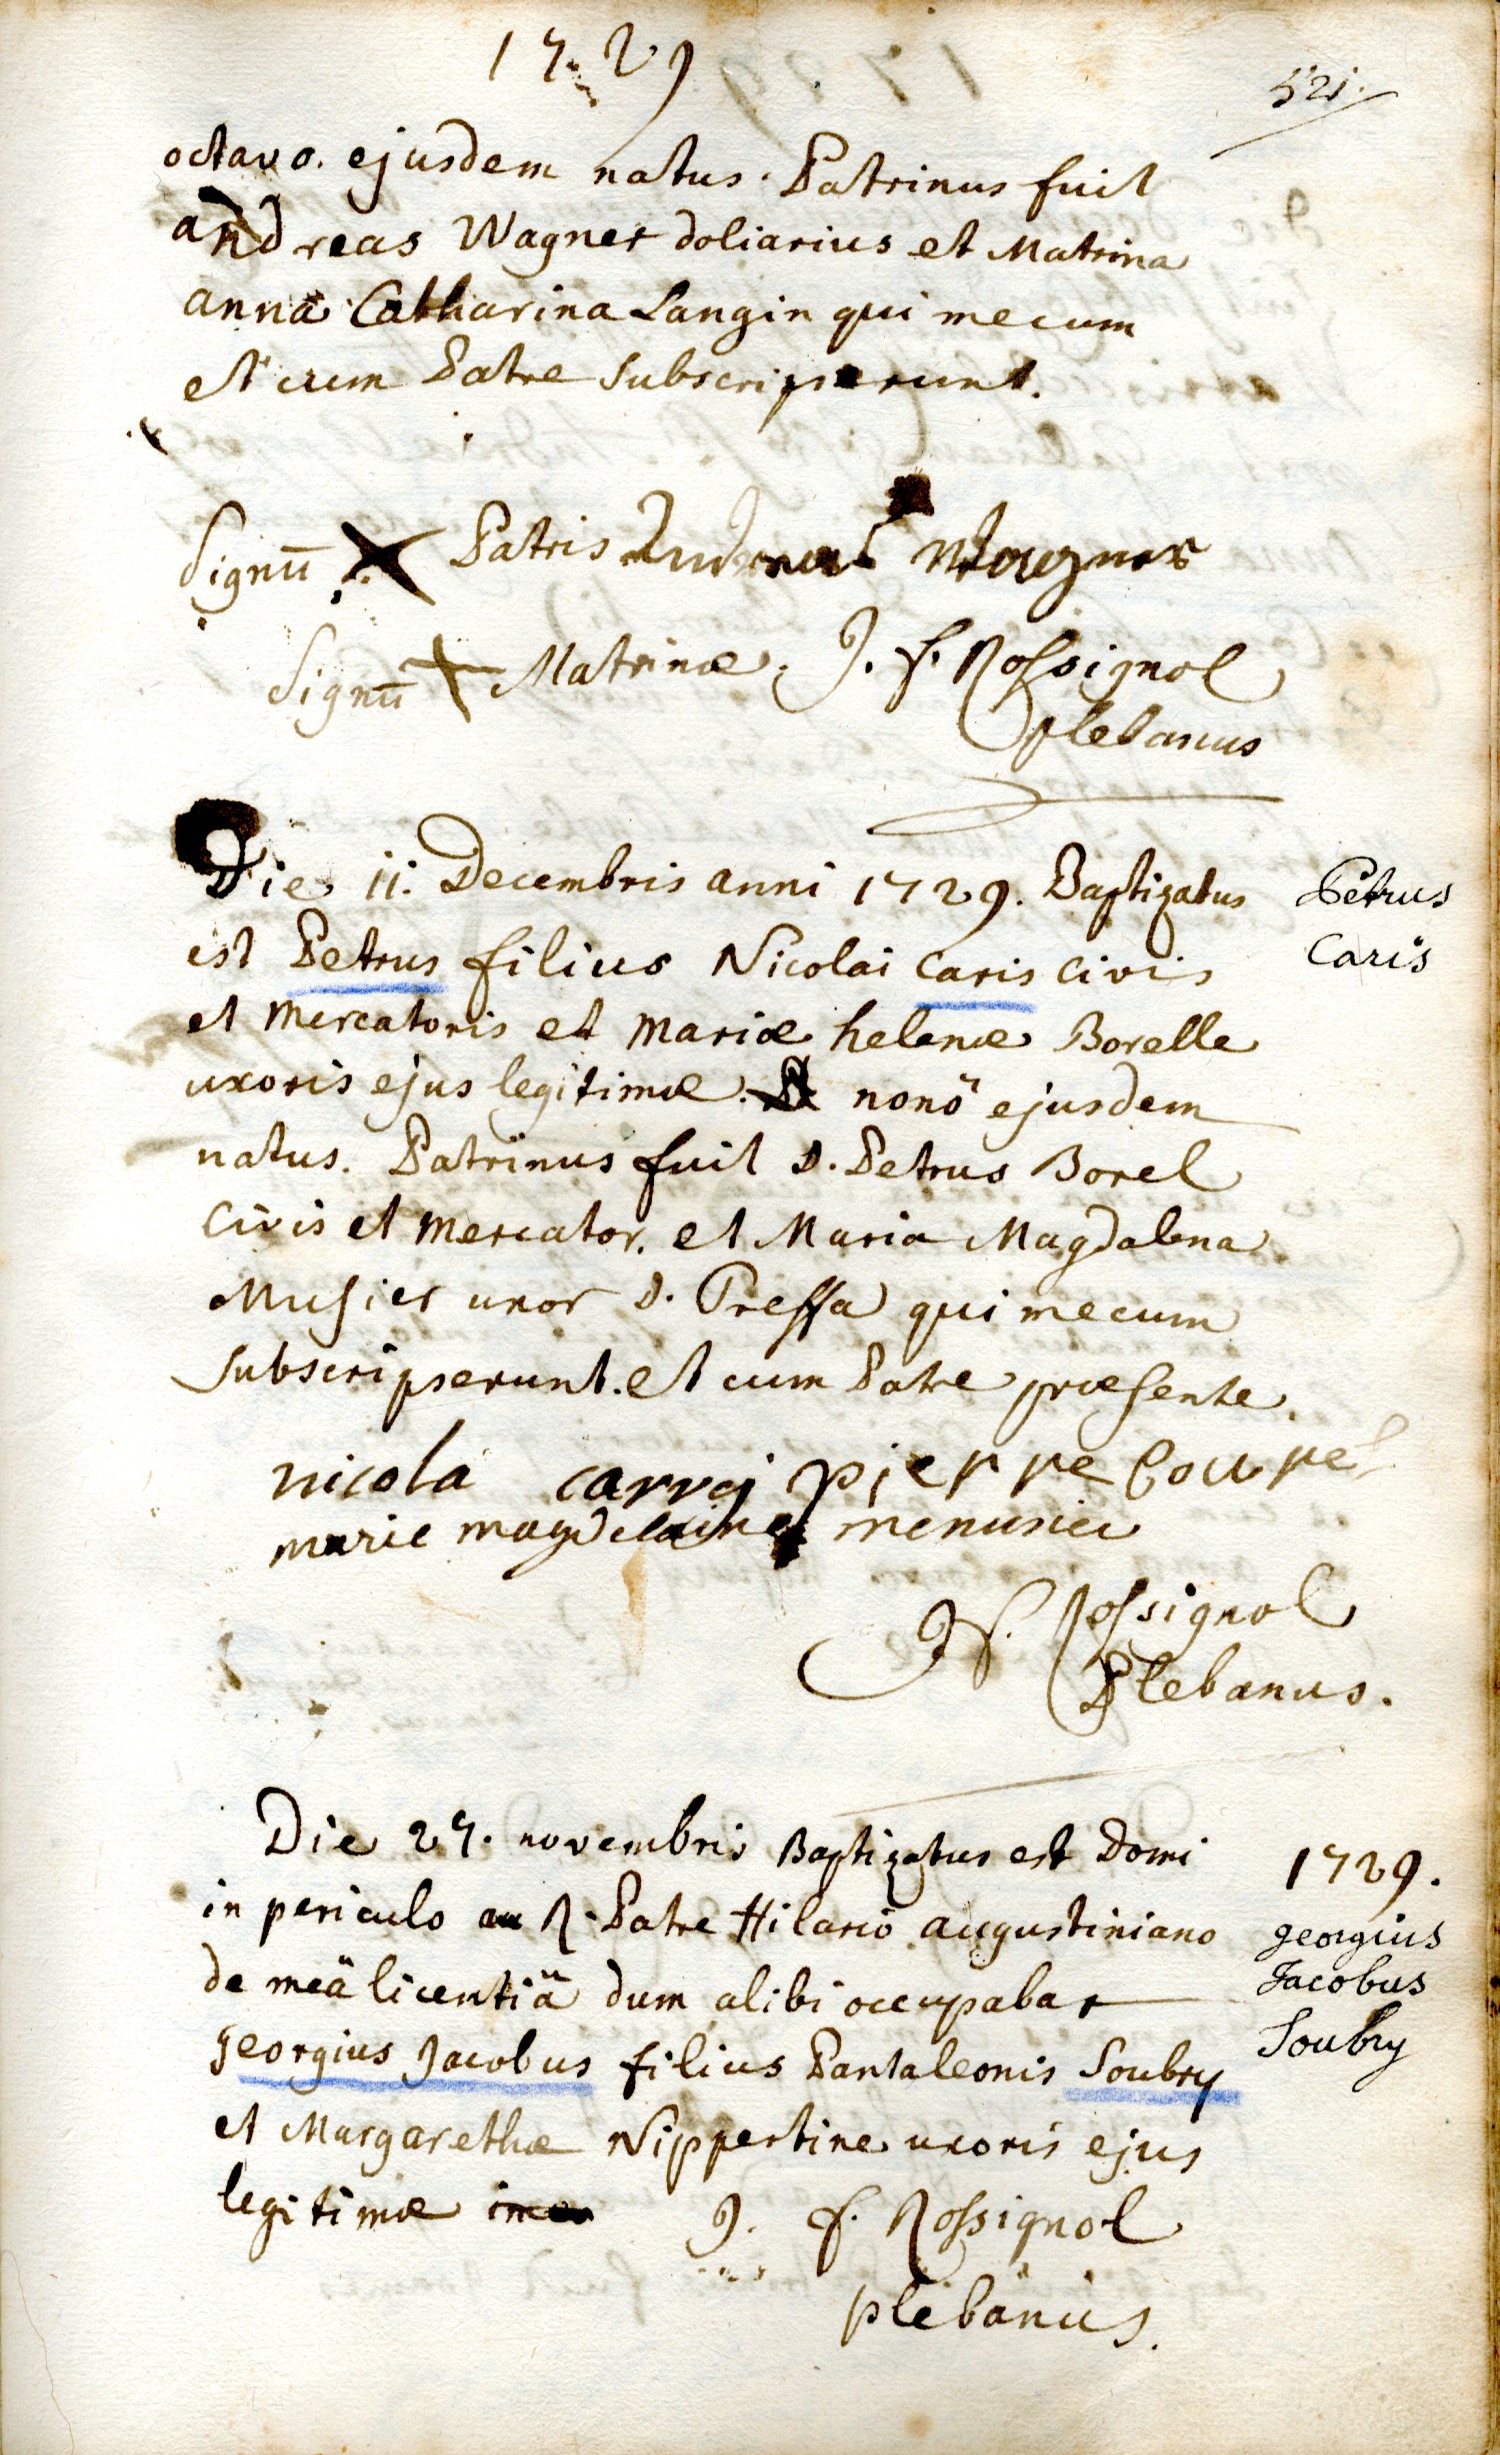 1729
521.
octavo. ejusdem natus. Patrinus fuit
andreas Wagner doliarius et Matrina
anna Catharina Langin qui mecum
et cum Patre subscripserunt.
Signū Patris Andreas Wagner
Signū Matrinæ. J. f. Rossignol
plebanus
Die ii. Decembris anni 1729. Baptizatus
est Petrus filius Nicolai Caris Civis
et Mercatoris et Mariæ helenæ Borelle
uxoris ejus legitimæ. nonö ejusdem
natus. Patrinus fuit D. Petrus Borel
Civis et Mercator. et Maria Magdalena
Musier uxor D. Pressa qui mecum
subscripserunt. et cum Patre præsente.
Petrus
Caris
nicola carraj pierre
marie magdelaine menusier
J f. Rossignol
Plebanus.
Die 27. novembris Baptizatus est Domi
in periculo a R. Patre Hilario augustiniano
de meä licentiä dum alibi occupabar
georgius Jacobus filius Pantaleonis Soubry
et Margarethæ Nippertine uxoris ejus
legitimæ
J. f. Rossignol
plebanus.
1729.
georgius
Jacobus
Soubry